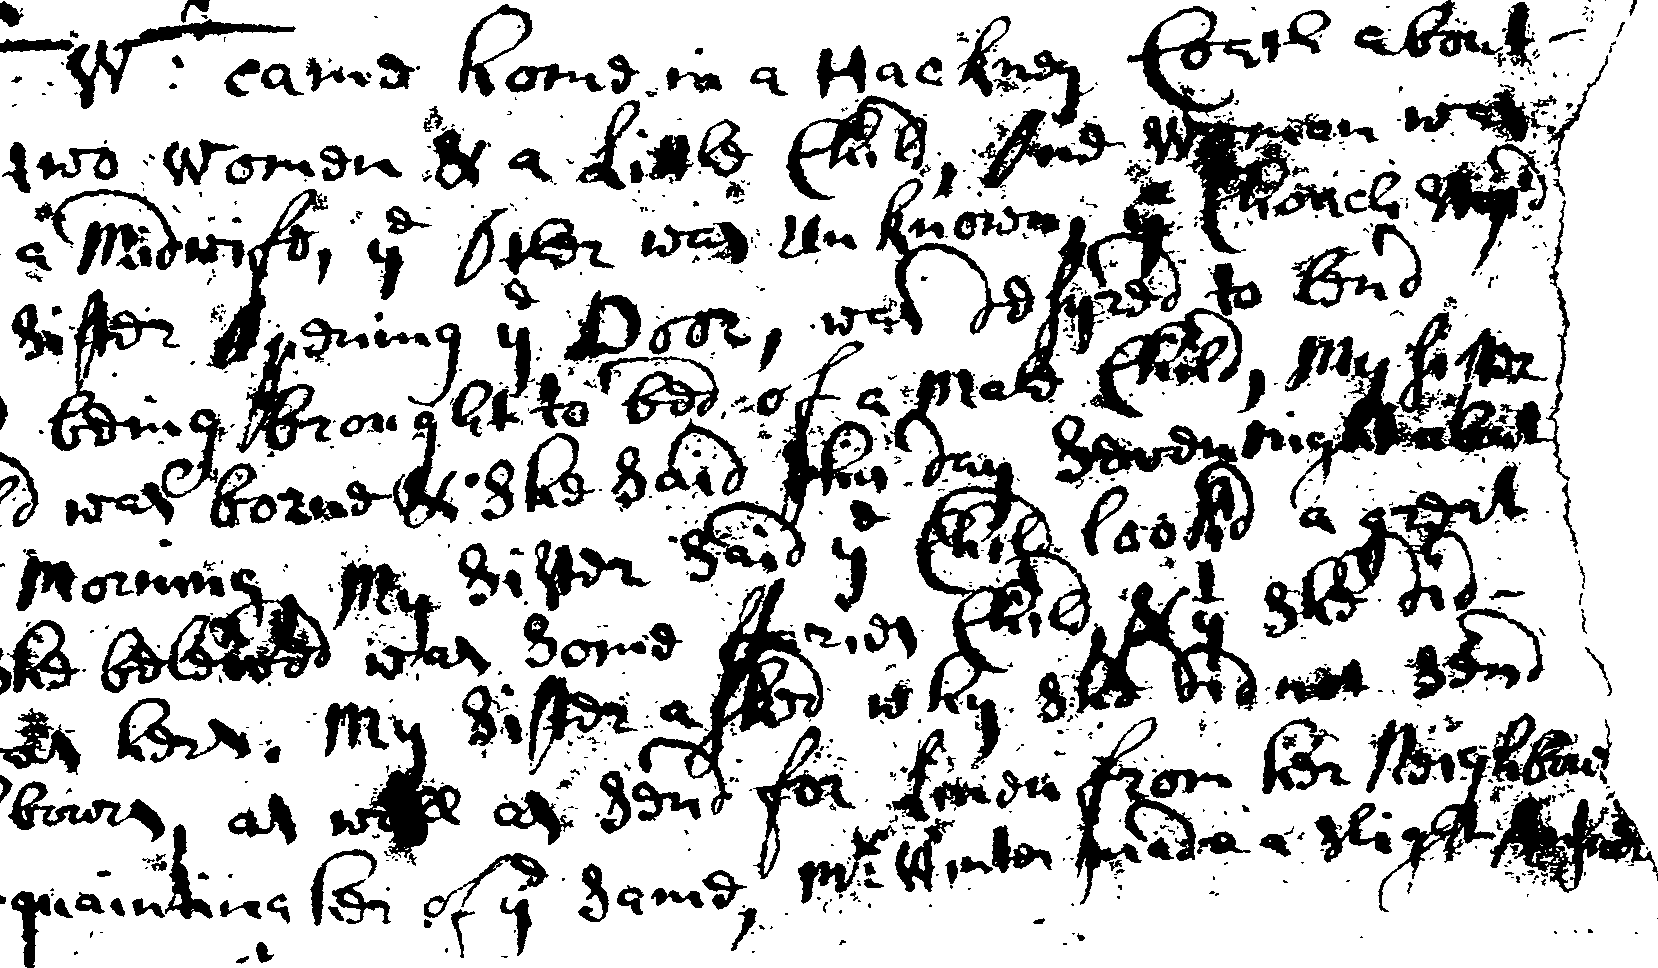 W: came home in a Hackney Coach about
two Women & a little Child, one Woman was
a Midwife, ye Other was Unknown, ye Couch
Sister opening ye Door, was desyred to lend
being brought to bed of a Male Child, My Sister
was borne & She Said this day Sevennight about
Morning, My Sister Said ye Child lookd a great
She beleived was some Child, & yt She did
hers. My Sister asked why She did not Send
bours, as well as Send for Linen from her Neighbour
quainting her of ye Same, Mrs Winter made a slight Answer